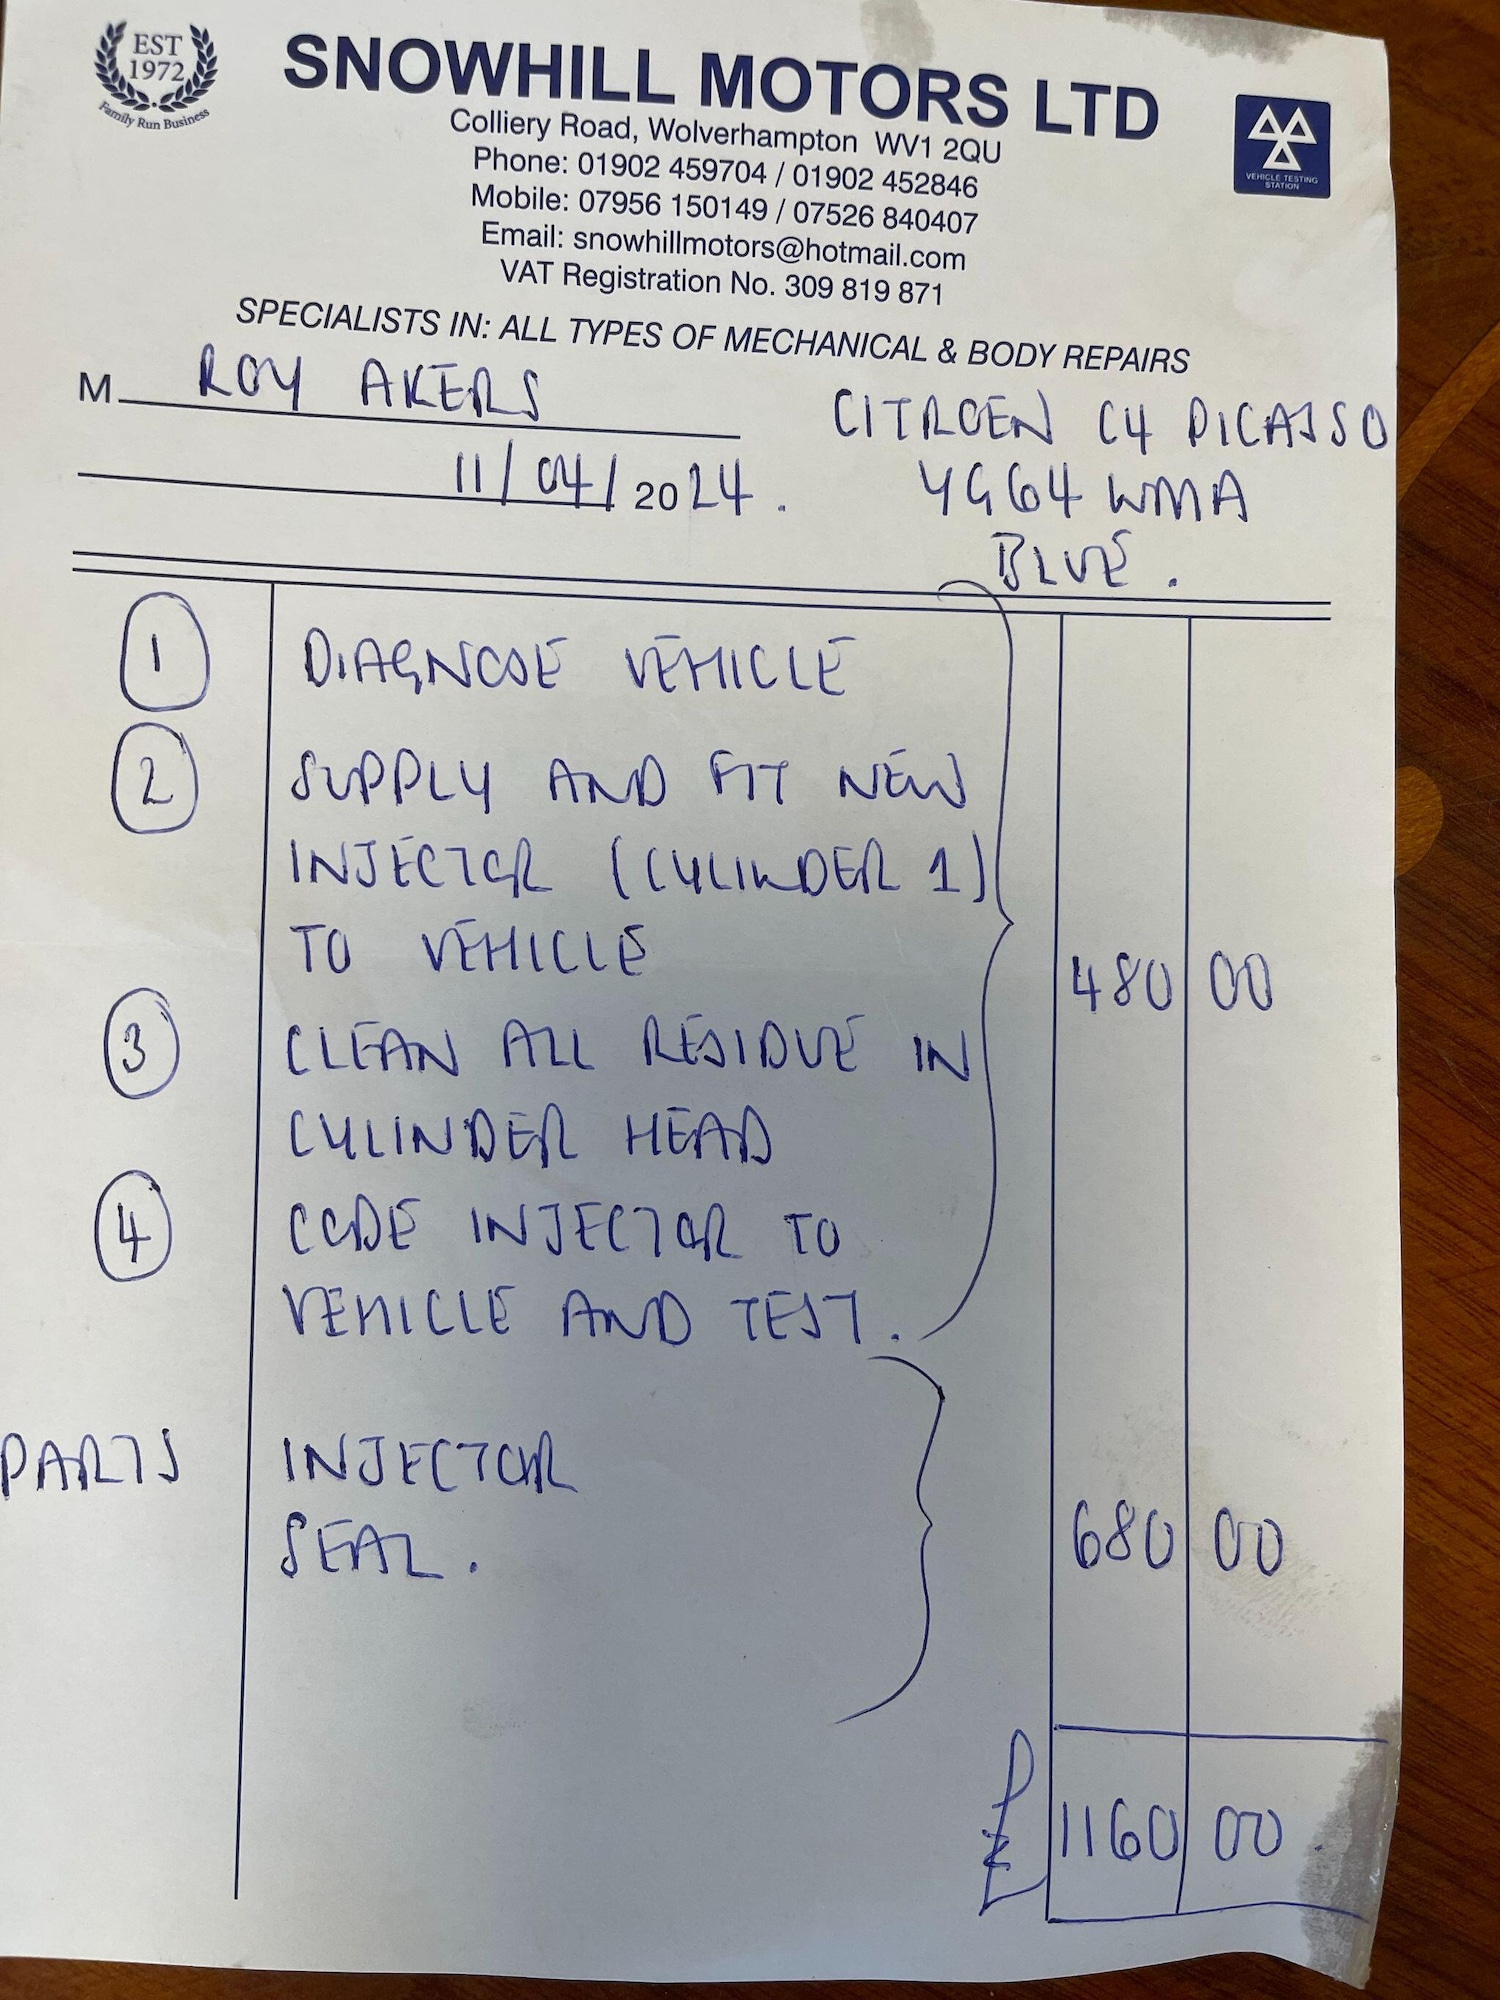 EST
1972
Family Run Business
SNOWHILL MOTORS LTD
Colliery Road, Wolverhampton WV1 2QU
Phone: 01902 459704 / 01902 452846
Mobile: 07956 150149 / 07526 840407
Email: snowhillmotors@hotmail.com
VAT Registration No. 309 819 871
VEHICLE TESTING
STATION
SPECIALISTS IN: ALL TYPES OF MECHANICAL & BODY REPAIRS
M ROY AKERS
CITROEN C4 PICASSO
11/04/2024.
YG64 WMA
BLUE.
1 DIAGNOSE VEHICLE
2 SUPPLY AND FIT NEW
INJECTOR (CYLINDER 1)
TO VEHICLE
480 00
3 CLEAN ALL RESIDUE IN
CYLINDER HEAD
4 CODE INJECTOR TO
VEHICLE AND TEST.
PARTS INJECTOR
SEAL.
680 00
£ 1160 00.